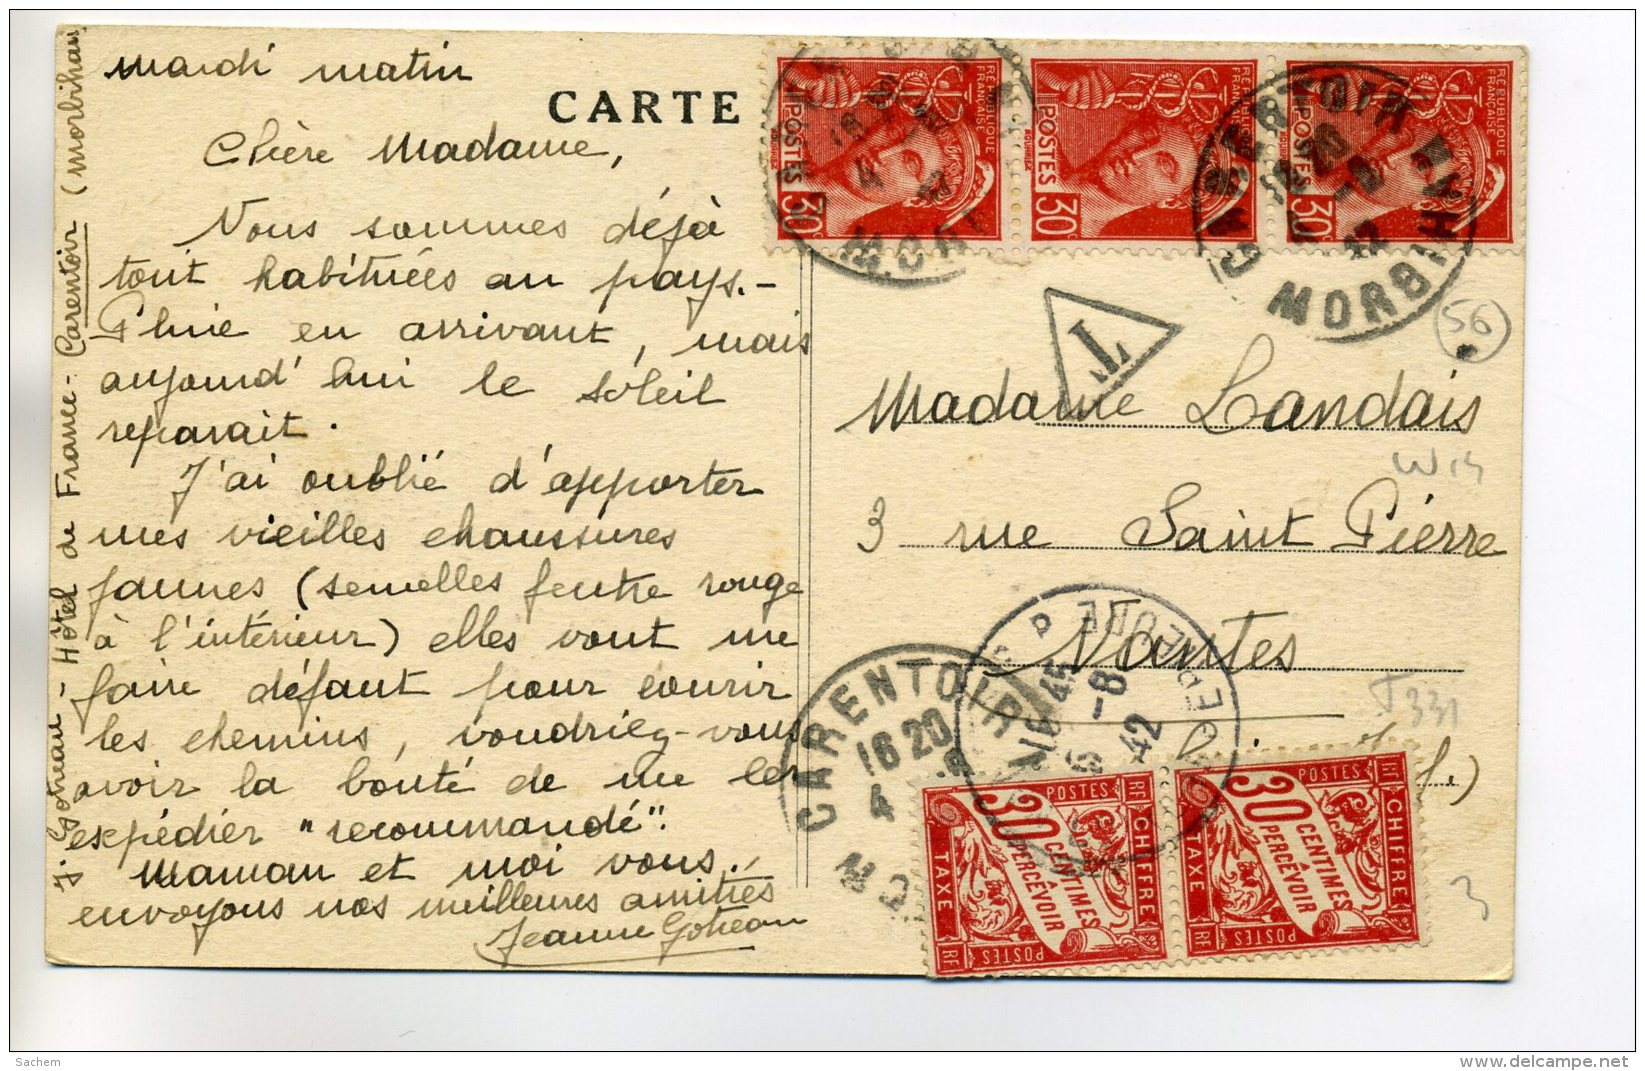 mardi matin
CARTE
Chère Madame,
Nous sommes déjà
tout habituées au pays.-
Pluie en arrivant, mais
aujourd'hui le soleil
reparait.
J'ai oublié d'apporter
mes vieilles chaussures
jaunes (semelles feutre rouge
à l'intérieur) elles vont me
faire défaut pour courir
les chemins, voudriez-vous
avoir la bonté de me les
expédier "recommandé".
Maman et moi vous
envoyons nos meilleures amitiés
Jeanne Gotreau
J. Gotreau - Hôtel de France - Carentoir (Morbihan)
REPUBLIQUE FRANÇAISE
POSTES 30c
MOURIER
REPUBLIQUE FRANÇAISE
POSTES 30c
MOURIER
REPUBLIQUE FRANÇAISE
POSTES 30c
CARENTOIR
MORBIHAN
T
56
Madame Landais
W 14
3 rue Saint Pierre
Nantes
T331
CARENTOIR
16 20
4
16 45
5 -8
42
POSTES RF
30 CENTIMES
PERCEVOIR
CHIFFRE
TAXE
RF POSTES
POSTES RF
30 CENTIMES
PERCEVOIR
CHIFFRE
TAXE
POSTES RF
3
Sachem
delcampe.net